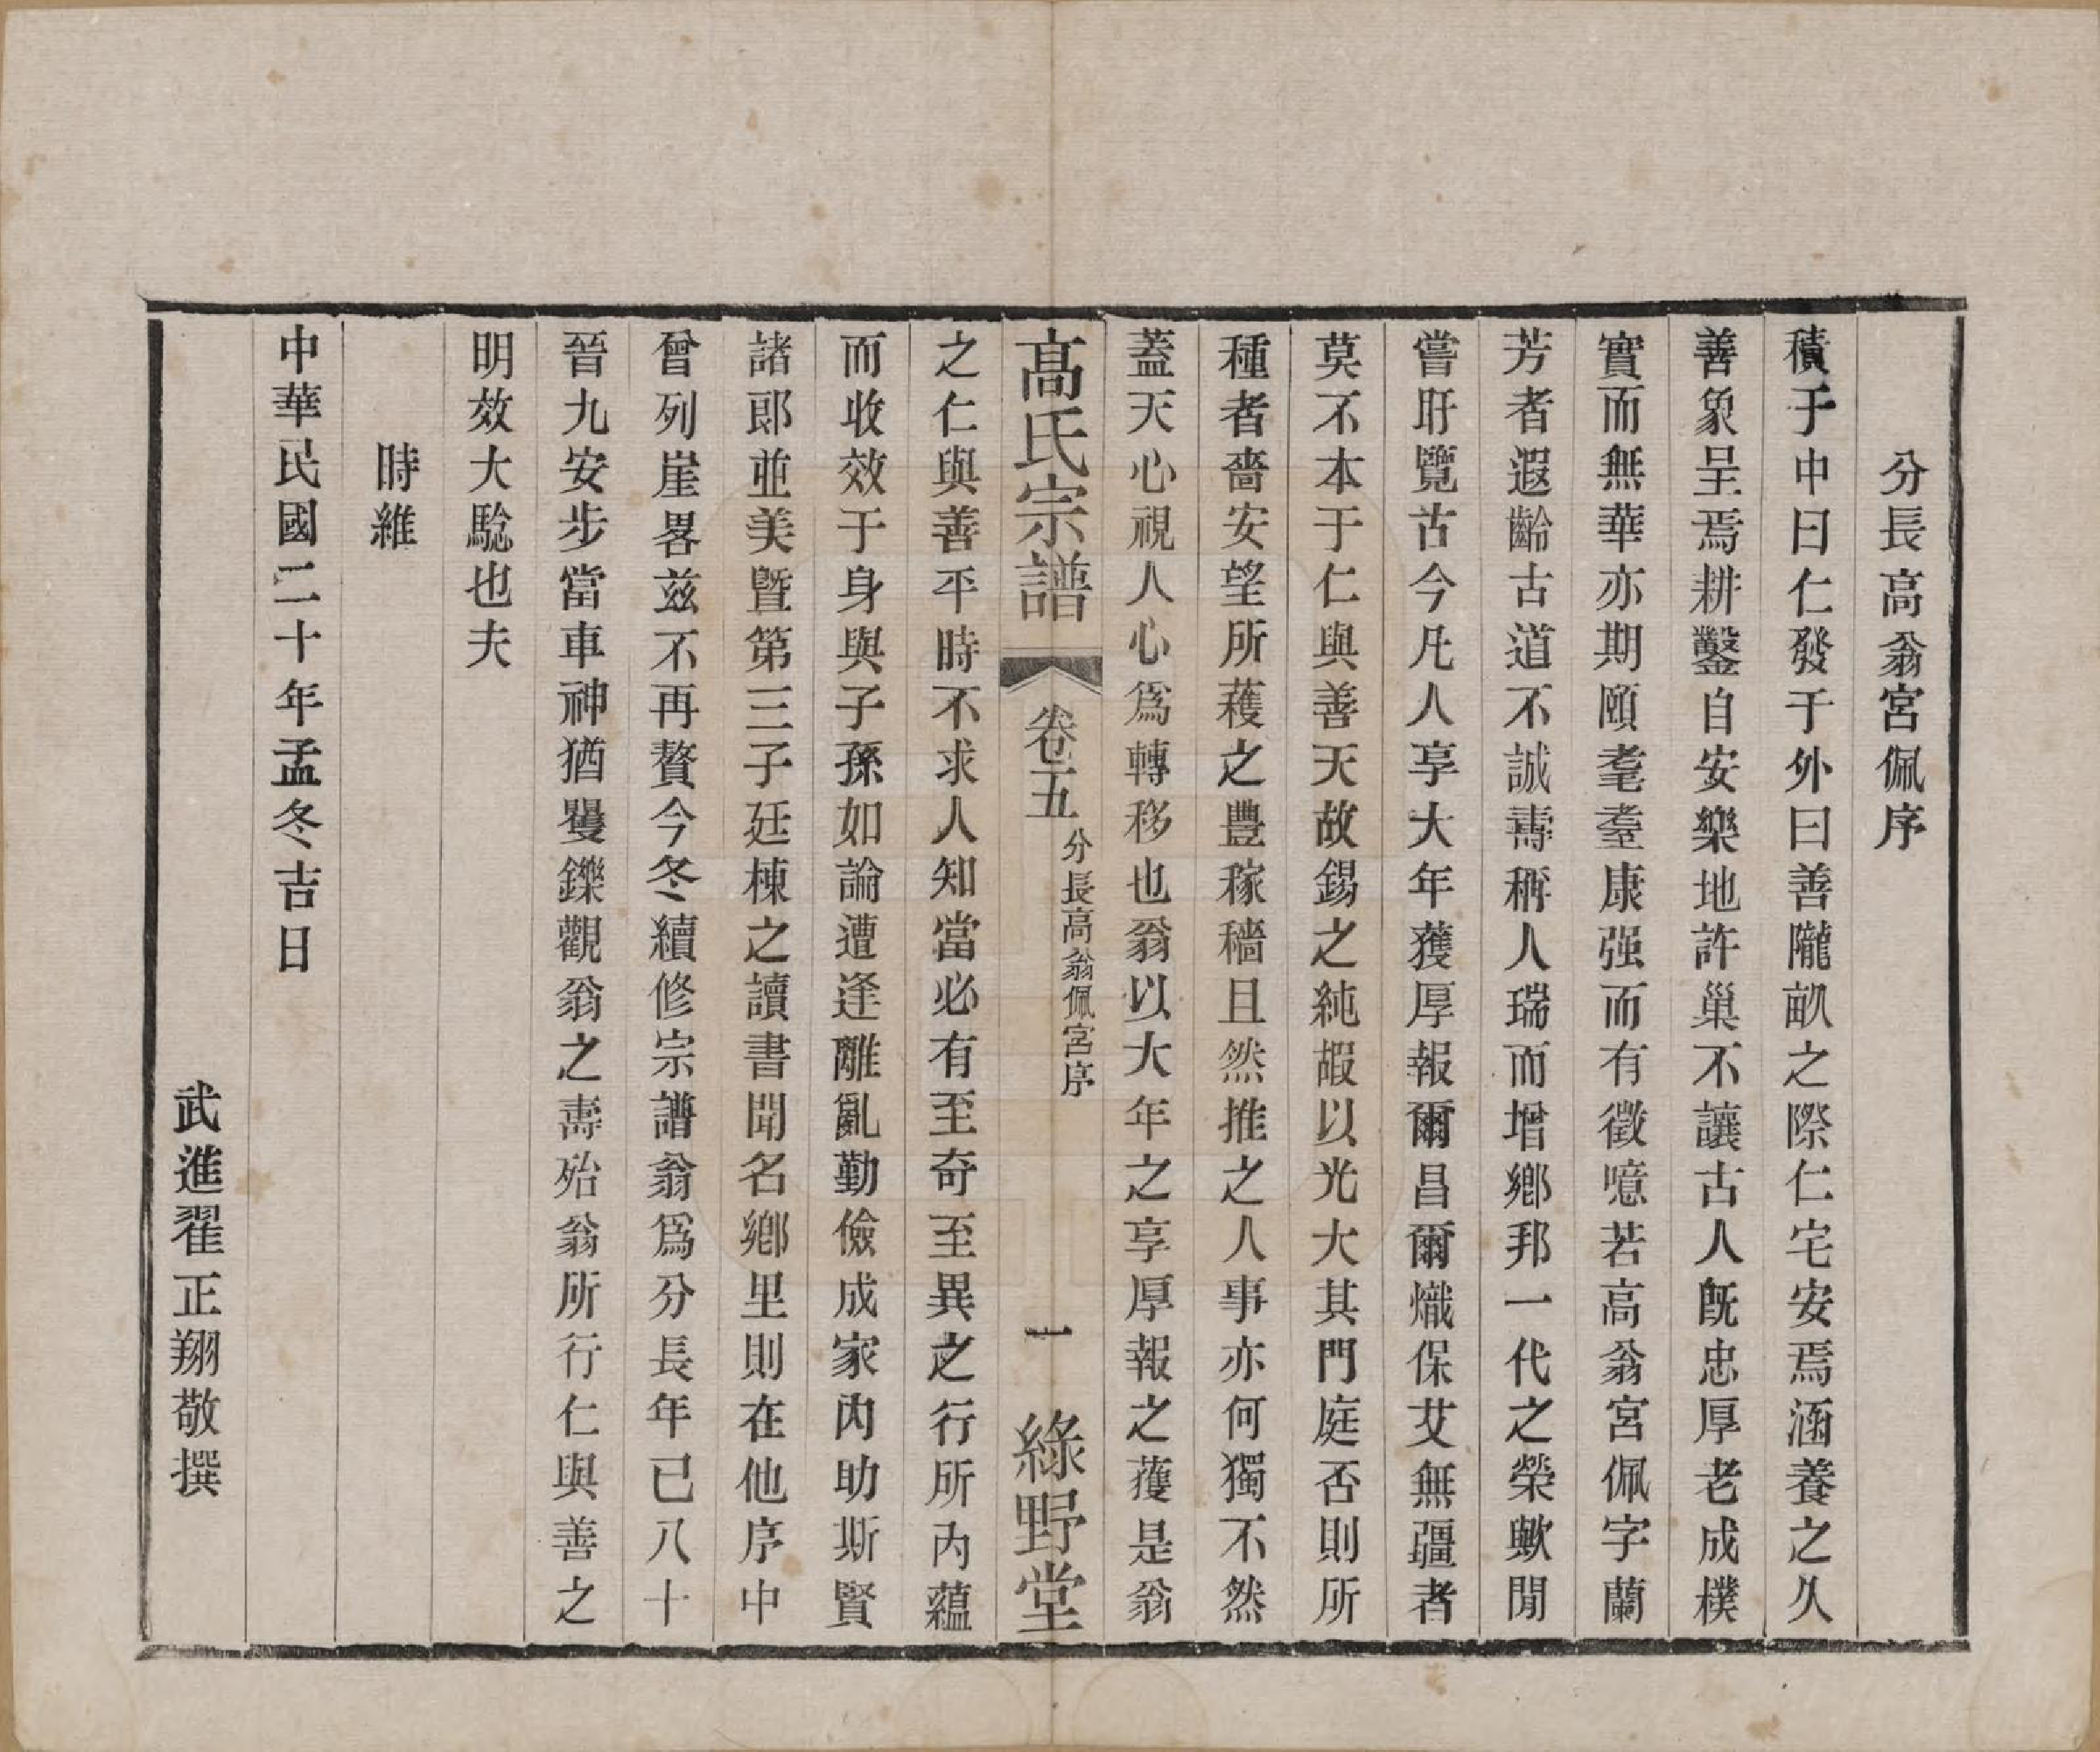 分長高翁宮佩序
積于中曰仁發于外曰善隴畝之際仁宅安焉涵養之久
善象呈焉耕鑿自安樂地許巢不讓古人旣忠厚老成樸
實而無華亦期頤耄耋康强而有徵噫若高翁宮佩字蘭
芳者遐齡古道不誠壽稱人瑞而增鄉邦一代之榮歟閒
嘗盱覽古今凡人享大年獲厚報爾昌爾熾保艾無疆者
莫不本于仁與善天故錫之純嘏以光大其門庭否則所
種者嗇安望所蔆之豐稼穡且然推之人事亦何獨不然
蓋天心視人心爲轉移也翁以大年之享厚報之蒦是翁
高氏宗譜 卷五 分長高翁佩宮序 一 綠野堂
之仁與善平時不求人知當必有至奇至異之行所內蘊
而收效于身與子孫如論遭逢離亂勤儉成家內助斯賢
諸郎並美暨第三子廷棟之讀書聞名鄉里則在他序中
曾列崖畧茲不再贅今冬續修宗譜翁爲分長年已八十
晉九安步當車神猶矍鑠觀翁之壽殆翁所行仁與善之
明效大騐也夫
時維
中華民國二十年孟冬吉日
武進翟正翔敬撰